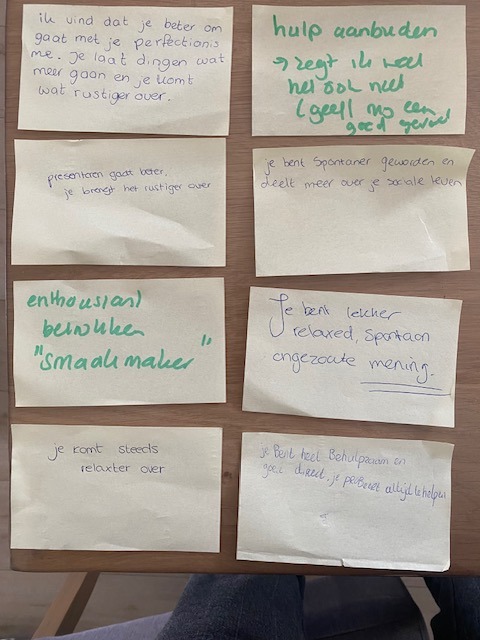 ik vind dat je beter om
gaat met je perfectionis
me. Je laat dingen wat
meer gaan en je komt
wat rustiger over.
hulp aanbieden
→ zegt ik
het ook niet
(geeft mij een
goed gevoel
presenteren gaat beter,
je brengt het rustiger over
je bent spontaner geworden en
deelt meer over je sociale leven
enthousiast
betrokken
"smaakmaker"
Je bent lekker
relaxed, spontaan
ongezoute mening.
je komt steeds
relaxter over
je Bent heel Behulpzaam en
goed direct, je probeert altijd te helpen